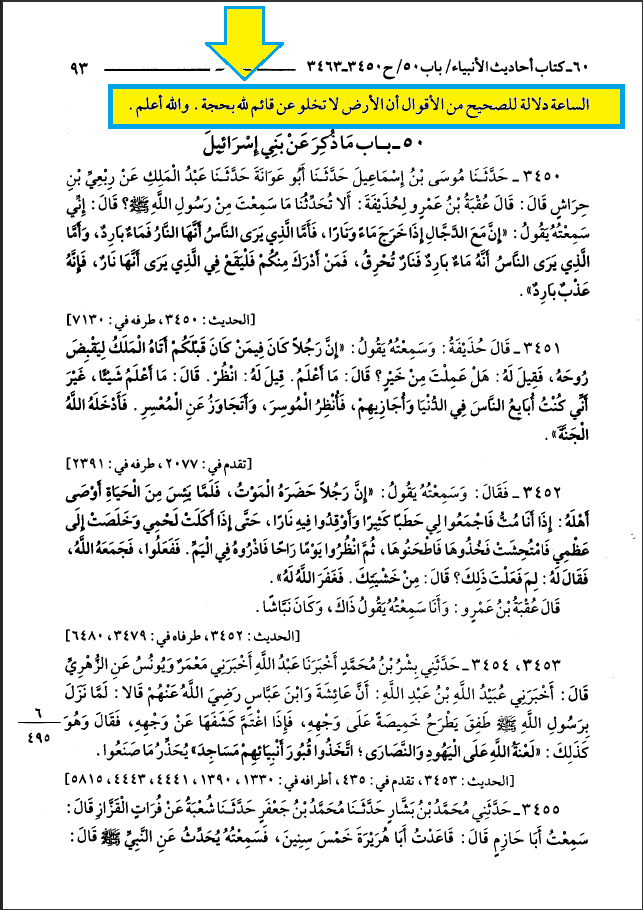 ٦٠ـ كتاب أحاديث الأنبياء/ باب ٥٠/ ح ٣٤٥٠ـ٣٤٦٣ ٩٣
الساعة دلالة للصحيح من الأقوال أن الأرض لا تخلو عن قائم لله بحجة . والله أعلم .
٥٠ ـ بـاب مَا ذُكِرَ عَنْ بَنِي إِسْرَائِيلَ
٣٤٥٠ ـ حَدَّثَنَا مُوسَى بْنُ إِسْمَاعِيلَ حَدَّثَنَا أَبُو عَوَانَةَ حَدَّثَنَا عَبْدُ الْمَلِكِ عَنْ رِبْعِيِّ بْنِ
حِرَاشٍ قَالَ : قَالَ عُقْبَةُ بْنُ عَمْرٍو لِحُذَيْفَةَ : أَلَا تُحَدِّثُنَا مَا سَمِعْتَ مِنْ رَسُولِ اللَّهِ ﷺ؟ قَالَ : إِنِّي
سَمِعْتُهُ يَقُولُ : «إِنَّ مَعَ الدَّجَّالِ إِذَا خَرَجَ مَاءً وَنَارًا، فَأَمَّا الَّذِي يَرَى النَّاسُ أَنَّهَا النَّارُ فَمَاءٌ بَارِدٌ، وَأَمَّا
الَّذِي يَرَى النَّاسُ أَنَّهُ مَاءٌ بَارِدٌ فَنَارٌ تُحْرِقُ، فَمَنْ أَدْرَكَ مِنْكُمْ فَلْيَقَعْ فِي الَّذِي يَرَى أَنَّهَا نَارٌ، فَإِنَّهُ
عَذْبٌ بَارِدٌ» .
[الحديث : ٣٤٥٠، طرفه في : ٧١٣٠]
٣٤٥١ ـ قَالَ حُذَيْفَةُ : وَسَمِعْتُهُ يَقُولُ : «إِنَّ رَجُلاً كَانَ فِيمَنْ كَانَ قَبْلَكُمْ أَتَاهُ الْمَلَكُ لِيَقْبِضَ
رُوحَهُ، فَقِيلَ لَهُ : هَلْ عَمِلْتَ مِنْ خَيْرٍ؟ قَالَ : مَا أَعْلَمُ . قِيلَ لَهُ : انْظُرْ. قَالَ: مَا أَعْلَمُ شَيْئًا، غَيْرَ
أَنِّي كُنْتُ أُبَايِعُ النَّاسَ فِي الدُّنْيَا وَأُجَازِيهِمْ، فَأُنْظِرُ الْمُوسِرَ، وَأَتَجَاوَزُ عَنِ الْمُعْسِرِ . فَأَدْخَلَهُ اللَّهُ
الْجَنَّةَ» .
[تقدم في : ٢٠٧٧، طرفه في : ٢٣٩١]
٣٤٥٢ ـ فَقَالَ : وَسَمِعْتُهُ يَقُولُ : «إِنَّ رَجُلاً حَضَرَهُ الْمَوْتُ، فَلَمَّا يَئِسَ مِنَ الْحَيَاةِ أَوْصَى
أَهْلَهُ : إِذَا أَنَا مُتُّ فَاجْمَعُوا لِي حَطَبًا كَثِيرًا وَأَوْقِدُوا فِيهِ نَارًا، حَتَّى إِذَا أَكَلَتْ لَحْمِي وَخَلَصَتْ إِلَى
عَظْمِي فَامْتُحِشَتْ فَخُذُوهَا فَاطْحَنُوهَا، ثُمَّ انْظُرُوا يَوْمًا رَاحًا فَاذْرُوهُ فِي الْيَمِّ. فَفَعَلُوا، فَجَمَعَهُ اللَّهُ،
فَقَالَ لَهُ : لِمَ فَعَلْتَ ذَلِكَ؟ قَالَ : مِنْ خَشْيَتِكَ . فَغَفَرَ اللَّهُ لَهُ» .
قَالَ عُقْبَةُ بْنُ عَمْرٍو : وَأَنَا سَمِعْتُهُ يَقُولُ ذَاكَ، وَكَانَ نَبَّاشًا .
[الحديث : ٣٤٥٢، طرفاه في : ٣٤٧٩، ٦٤٨٠]
٣٤٥٣، ٣٤٥٤ ـ حَدَّثَنِي بِشْرُ بْنُ مُحَمَّدٍ أَخْبَرَنَا عَبْدُ اللَّهِ أَخْبَرَنِي مَعْمَرٌ وَيُونُسُ عَنِ الزُّهْرِيِّ
قَالَ : أَخْبَرَنِي عُبَيْدُ اللَّهِ بْنُ عَبْدِ اللَّهِ : أَنَّ عَائِشَةَ وَابْنَ عَبَّاسٍ رَضِيَ اللَّهُ عَنْهُمْ قَالا : لَمَّا نَزَلَ
بِرَسُولِ اللَّهِ ﷺ طَفِقَ يَطْرَحُ خَمِيصَةً عَلَى وَجْهِهِ، فَإِذَا اغْتَمَّ كَشَفَهَا عَنْ وَجْهِهِ، فَقَالَ وَهُوَ
كَذَلِكَ : «لَعْنَةُ اللَّهِ عَلَى الْيَهُودِ وَالنَّصَارَى؛ اتَّخَذُوا قُبُورَ أَنْبِيَائِهِمْ مَسَاجِدَ» يُحَذِّرُ مَا صَنَعُوا .
٦
٤٩٥
[الحديث : ٣٤٥٣، تقدم في : ٤٣٥، أطرافه في : ١٣٣٠، ١٣٩٠، ٤٤٤١، ٤٤٤٣، ٥٨١٥]
٣٤٥٥ ـ حَدَّثَنِي مُحَمَّدُ بْنُ بَشَّارٍ حَدَّثَنَا مُحَمَّدُ بْنُ جَعْفَرٍ حَدَّثَنَا شُعْبَةُ عَنْ فُرَاتٍ الْقَزَّازِ قَالَ :
سَمِعْتُ أَبَا حَازِمٍ قَالَ : قَاعَدْتُ أَبَا هُرَيْرَةَ خَمْسَ سِنِينَ، فَسَمِعْتُهُ يُحَدِّثُ عَنِ النَّبِيِّ ﷺ قَالَ :